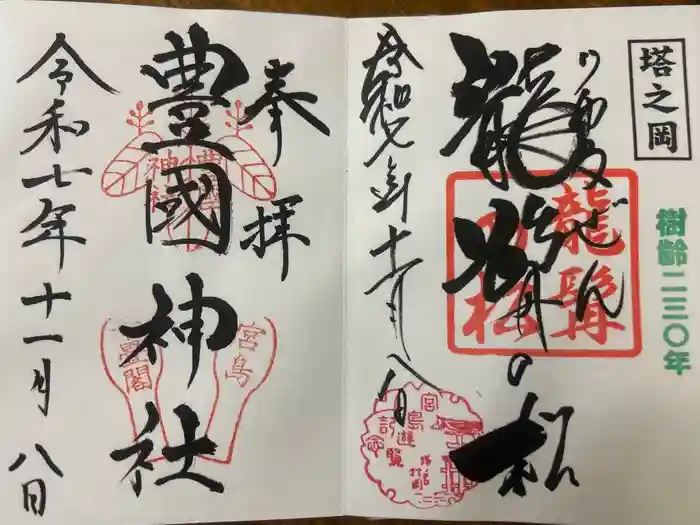 塔之岡
樹齢二三〇年
龍髯の松
りゅうぜん
龍髯
の松
令和七年十一月八日
宮島
遊覧
記念
奉拝
豊國神社
豊國
神社
宮島
豊閣
令和七年十一月八日